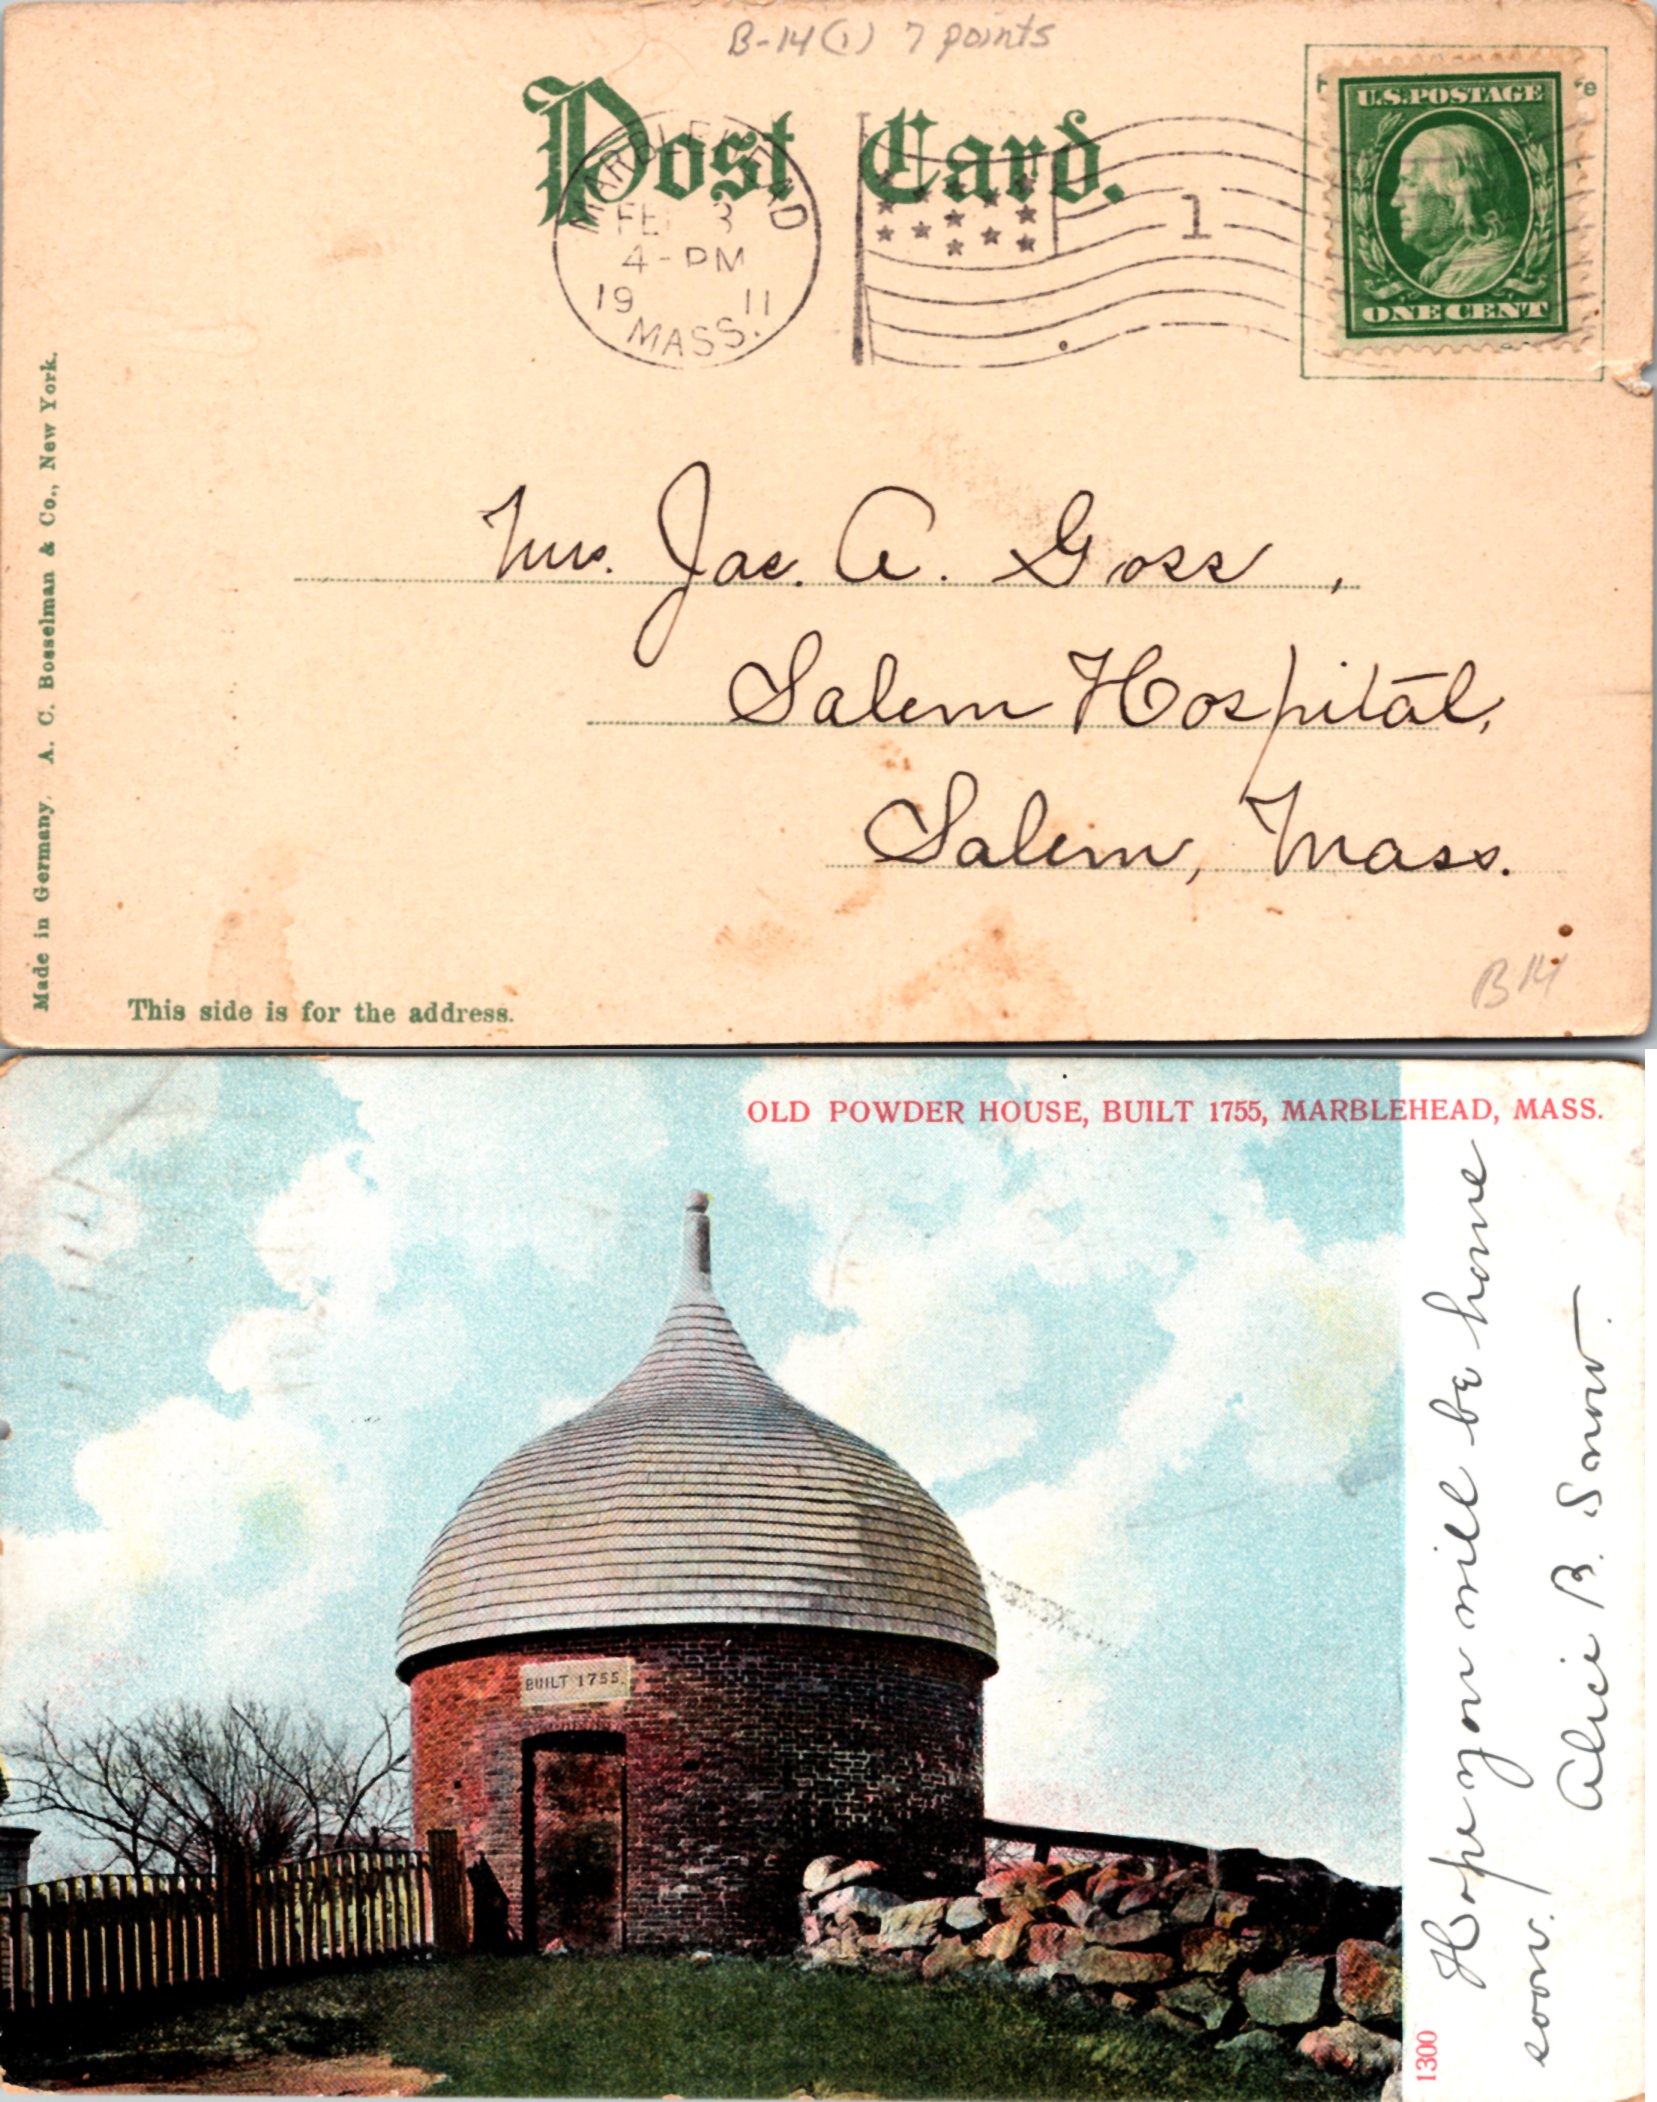 B-14 (1) 7 points
Post Card.
U.S. POSTAGE
ONE CENT
MARBLEHEAD
FEB 3
4 - PM
19 11
MASS.
1
Mrs. Jas. A. Goss,
Salem Hospital,
Salem, Mass.
B14
Made in Germany. A. C. Bosselman & Co., New York.
This side is for the address.
OLD POWDER HOUSE, BUILT 1755, MARBLEHEAD, MASS.
BUILT 1755.
Hope you will be home
soon.
Alice B. Snow.
1300